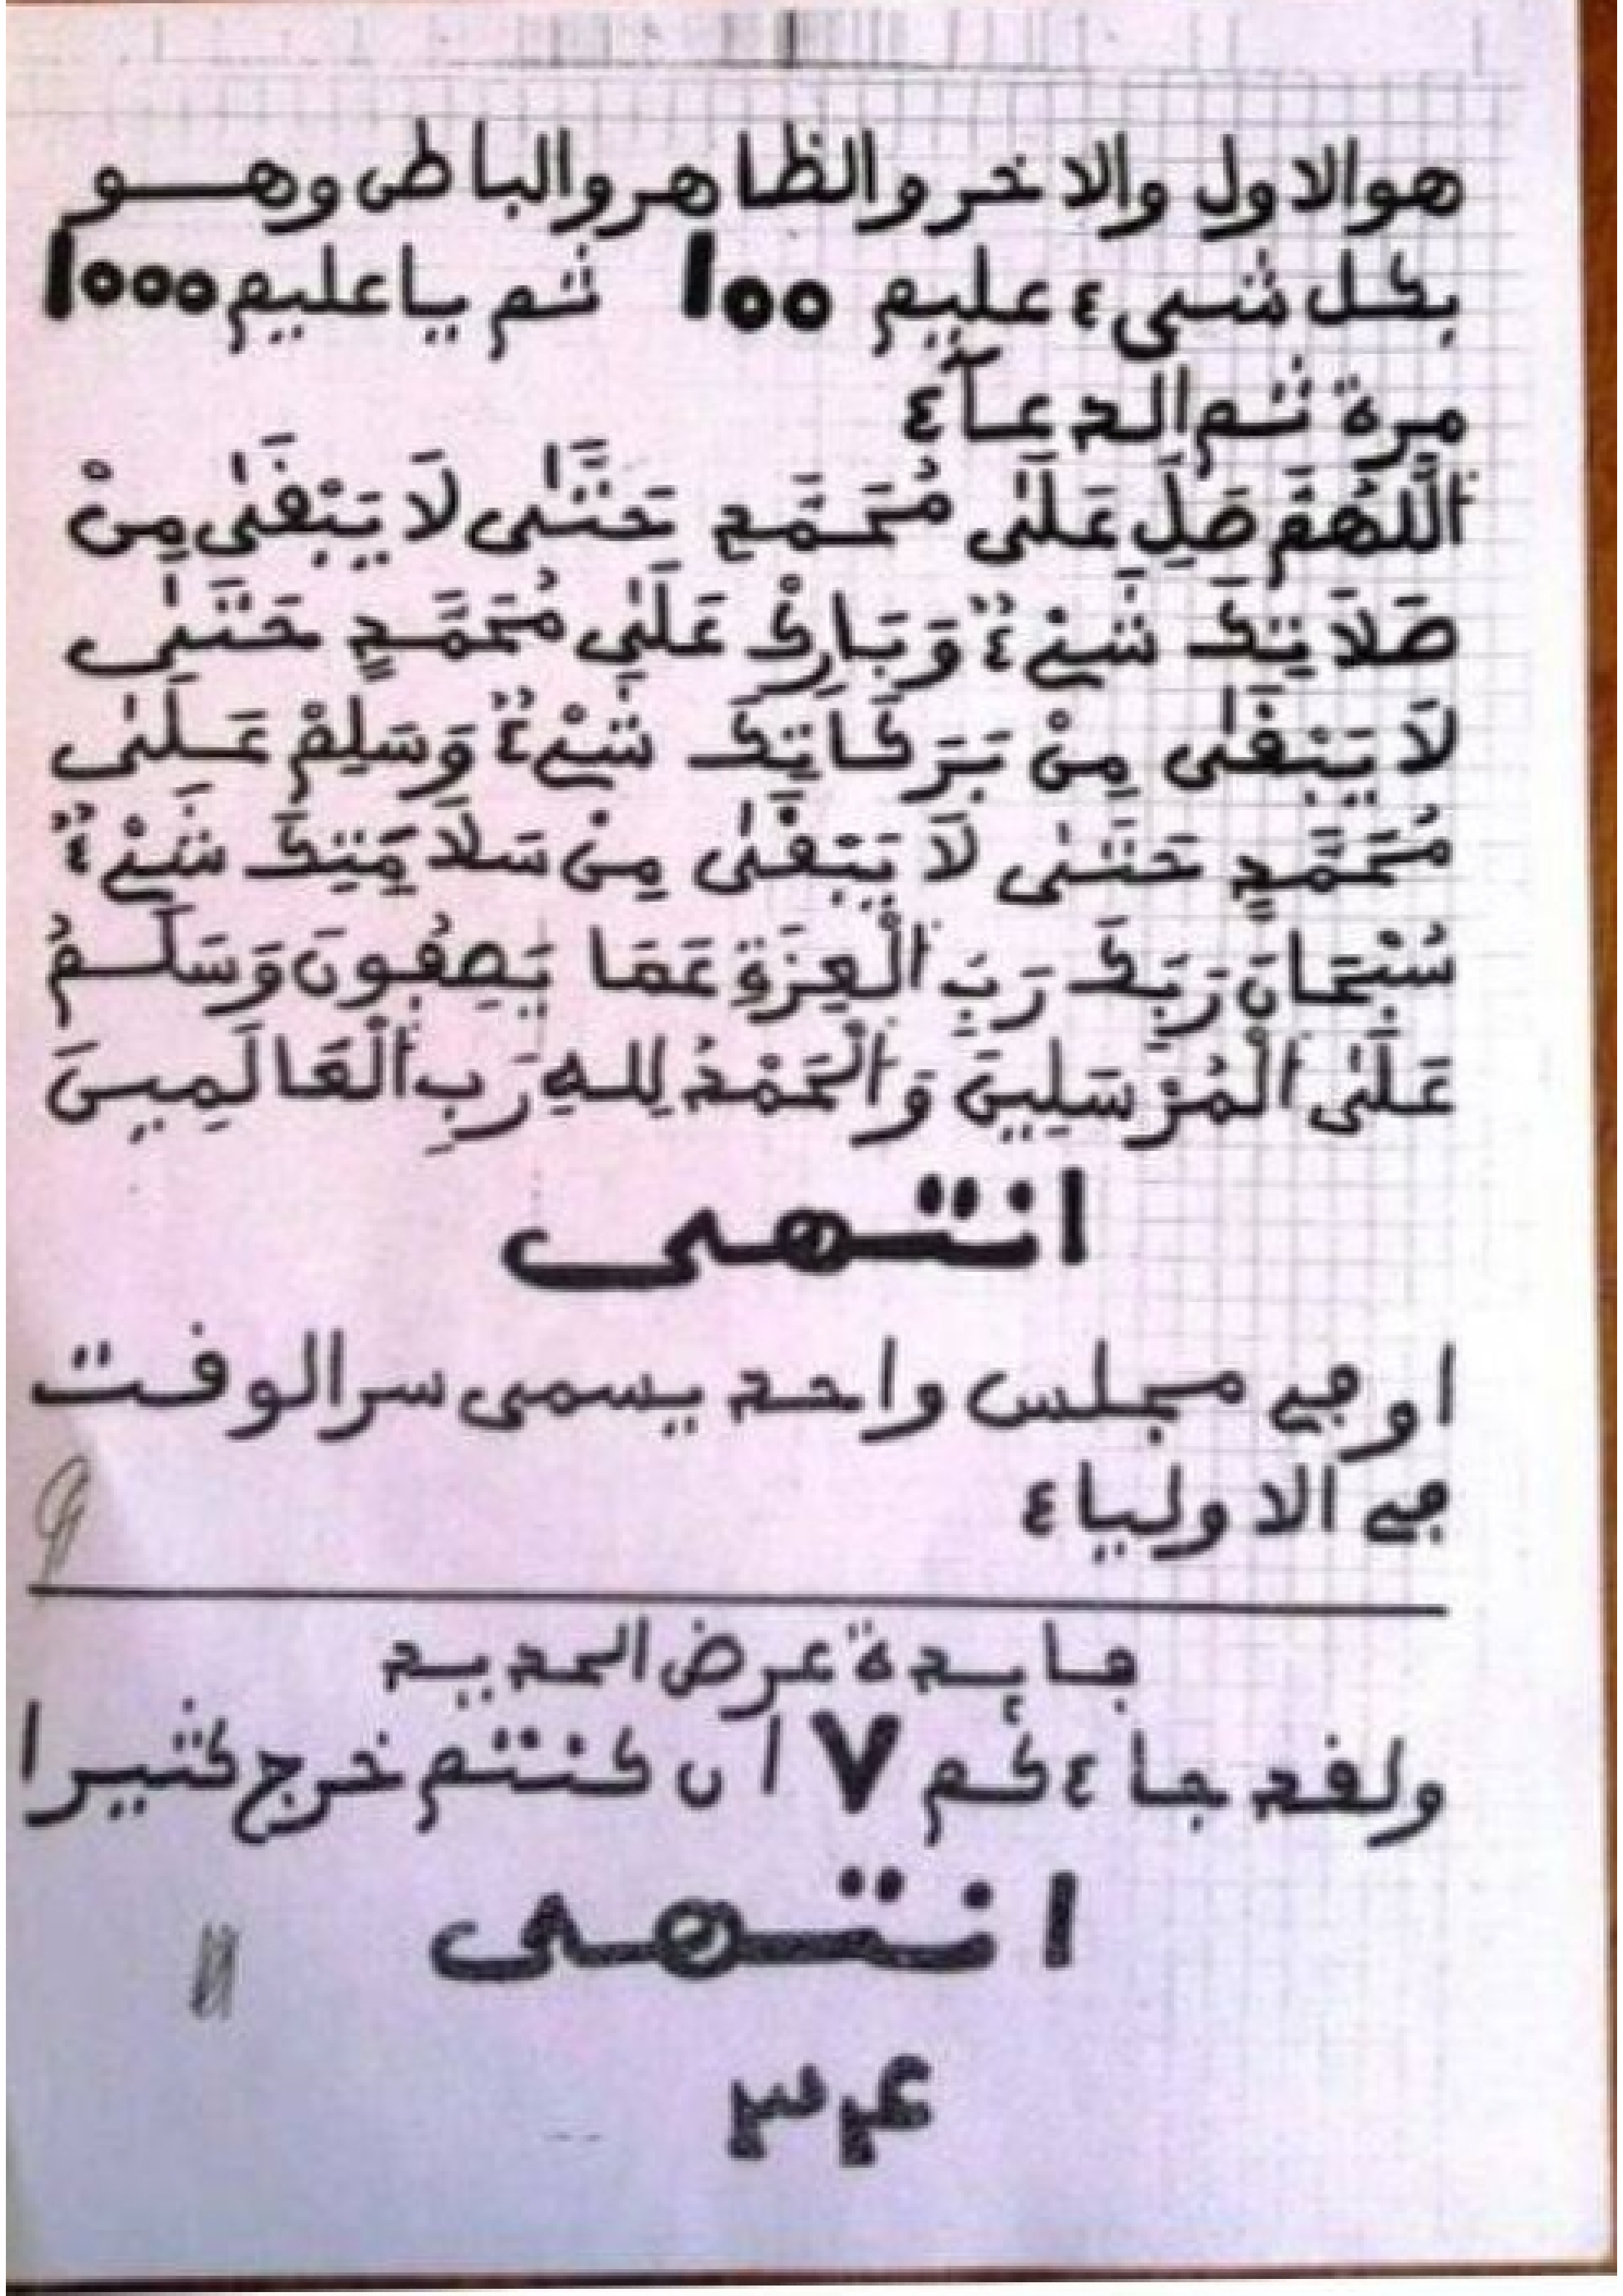 هو الاول والاخر والظاهر والباطن وهو
بكل شيء عليم 100 ثم يا عليم 1000
مرة ثم الدعآء
اَللَّهُمَّ صَلِ عَلَى مُحَمَّدٍ حَتَّى لَا يَبْقَى مِنْ
صَلَاتِكَ شَيْءٌ وَبَارِكْ عَلَى مُحَمَّدٍ حَتَّى
لَا يَبْقَى مِنْ بَرَكَاتِكَ شَيْءٌ وَسَلِمْ عَلَى
مُحَمَّدٍ حَتَّى لَا يَبْقَى مِنْ سَلَامَتِكَ شَيْءٌ
سُبْحَانَ رَبِكَ رَبِ الْعِزَةِ عَمَا يَصِفُونَ وَسَلَمُ
عَلَى الْمُرْسَلِينَ وَالْحَمْدُ لِلهِ رَبِ الْعَالَمِينَ
انتهى
او في مجلس واحد يسمى سر الوقت
في الاولياء
فايدة عرض الحديد
ولقد جاءكم 7 ان كنتم خرج كثيرا
انتهى
۳۴